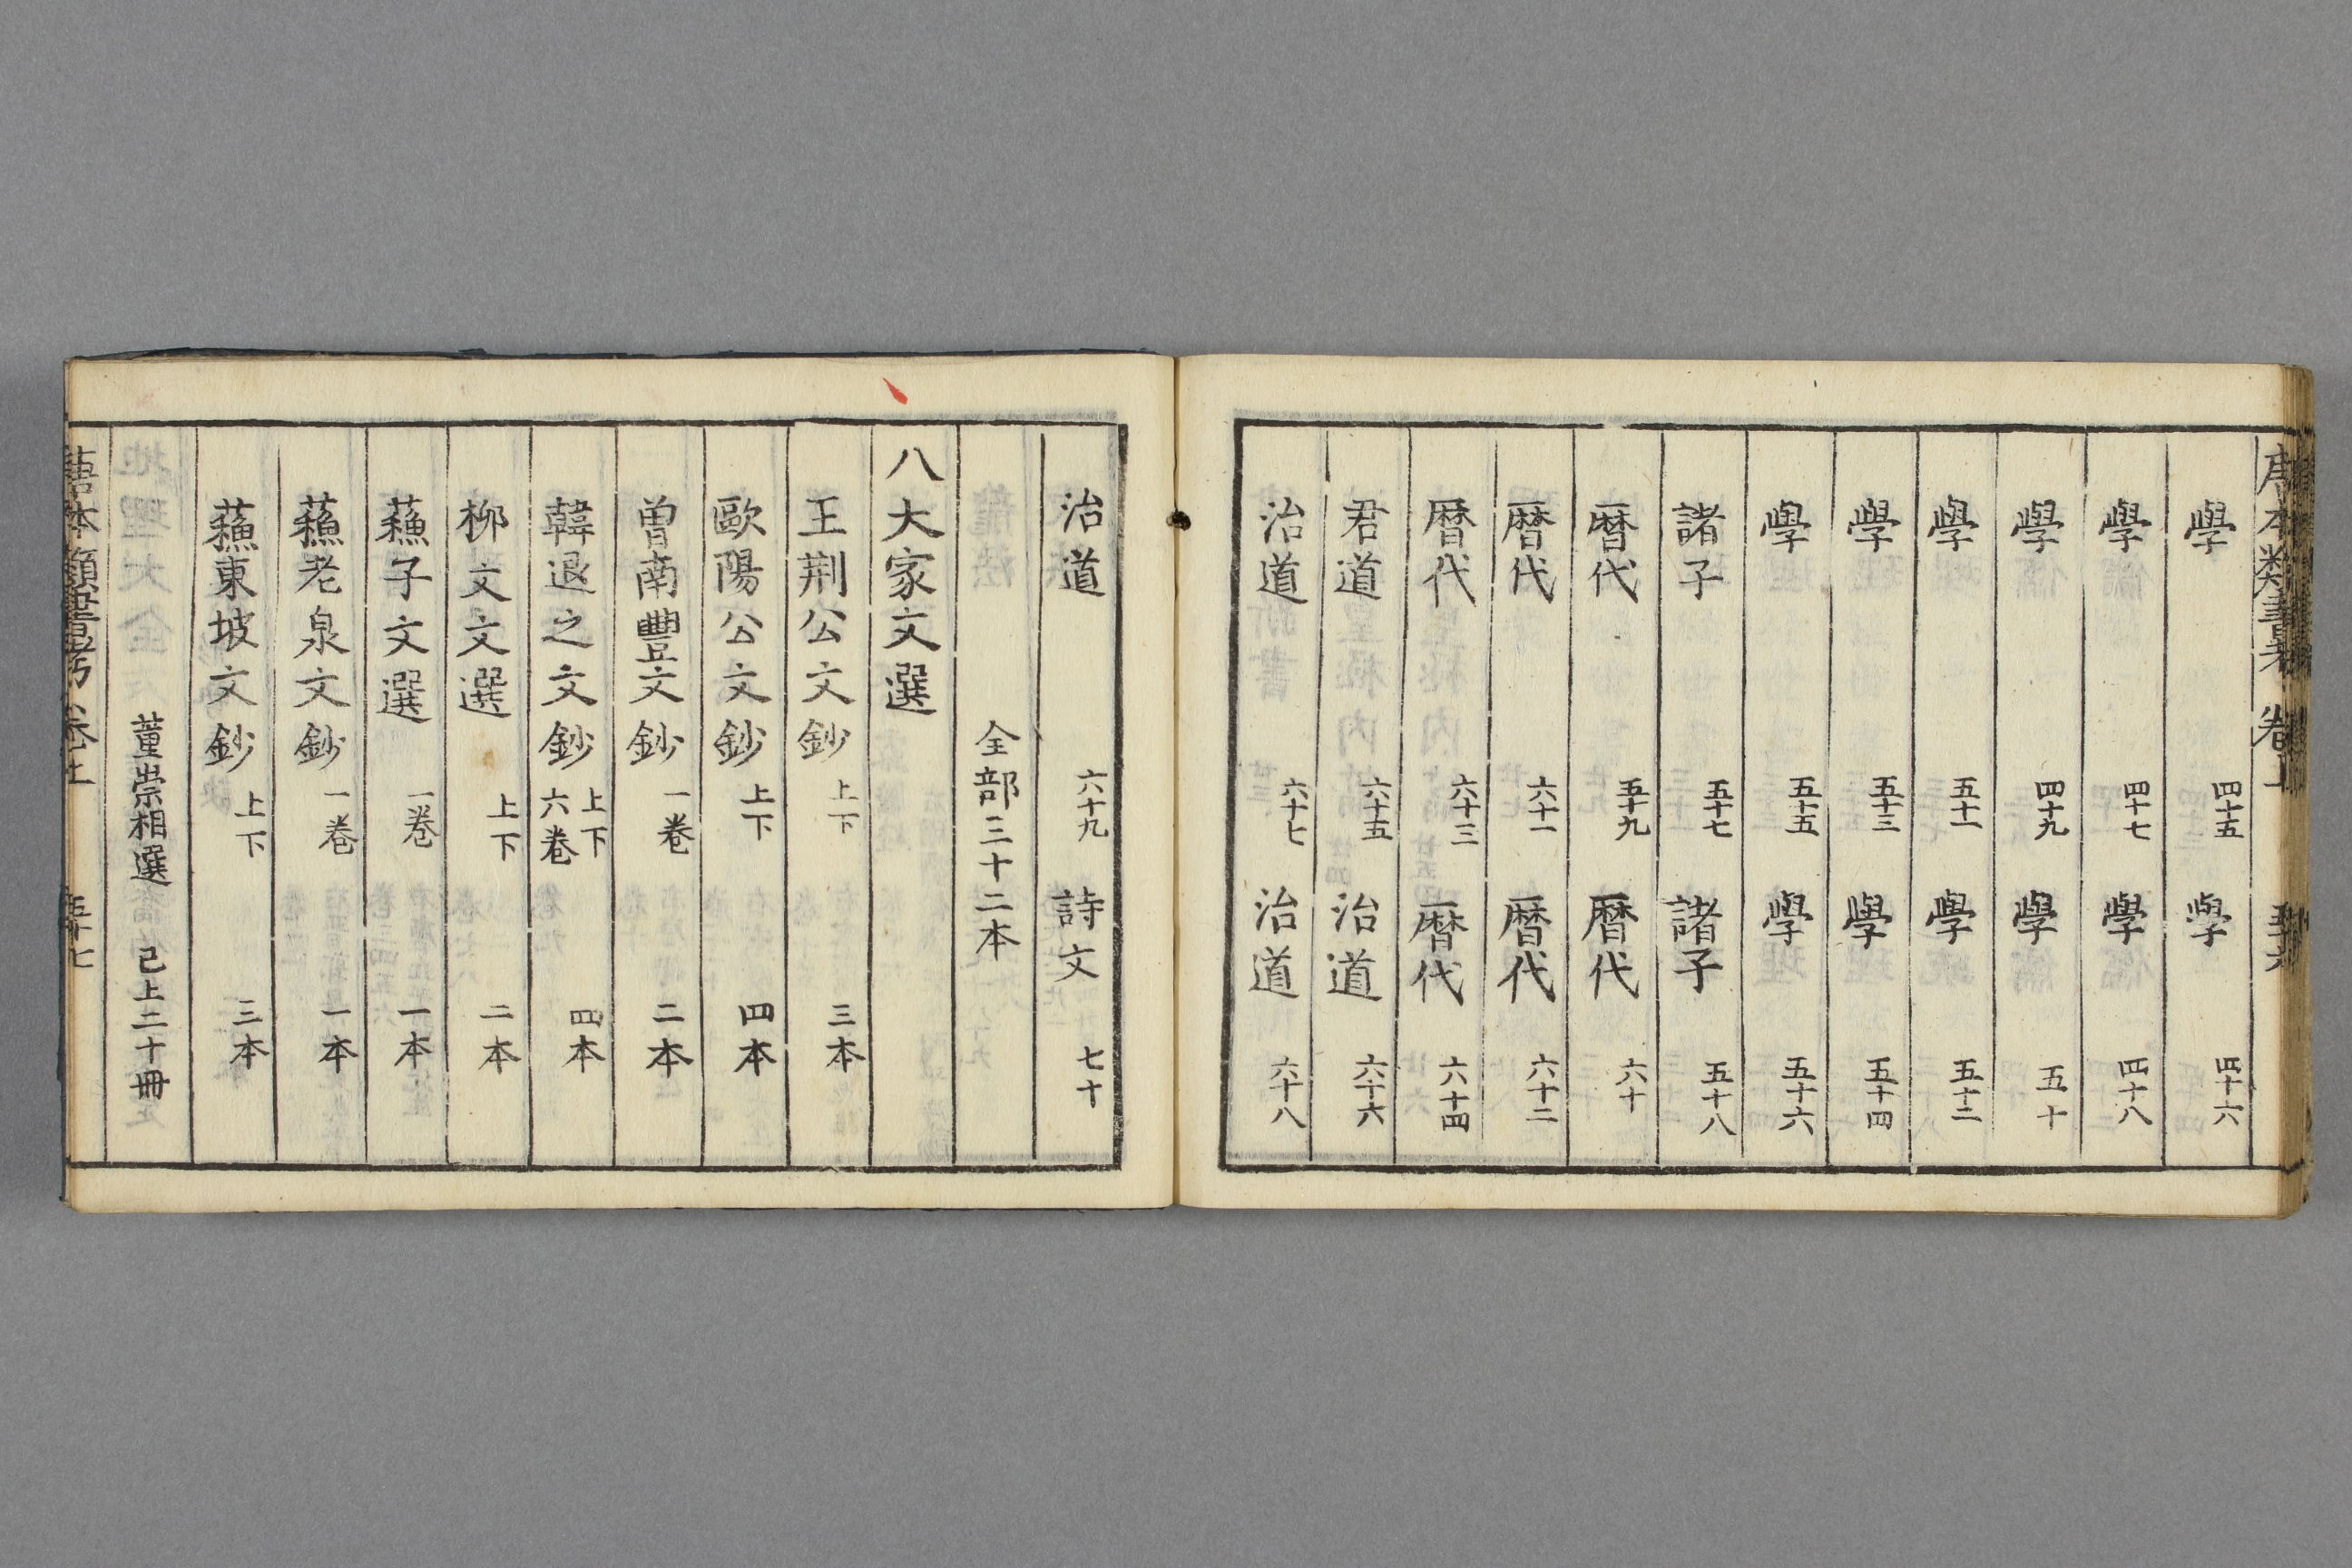 唐本類書考 卷上 五十六
學 四十五 學 四十六
學 四十七 學 四十八
學 四十九 學 五十
學 五十一 學 五十二
學 五十三 學 五十四
學 五十五 學 五十六
諸子 五十七 諸子 五十八
暦代 五十九 暦代 六十
暦代 六十一 暦代 六十二
暦代 六十三 暦代 六十四
君道 六十五 治道 六十六
治道 六十七 治道 六十八
治道 六十九 詩文 七十
全部三十二本
八大家文選
王荆公文鈔 上下 三本
歐陽公文鈔 上下 四本
曽南豐文鈔 一卷 二本
韓退之文鈔 上下六卷 四本
栁文文選 上下 二本
蘓子文選 一卷 一本
蘓老泉文鈔 一卷 一本
蘓東坡文鈔 上下 三本
董崇相選 已上二十冊
唐本類書考 卷上 五十七